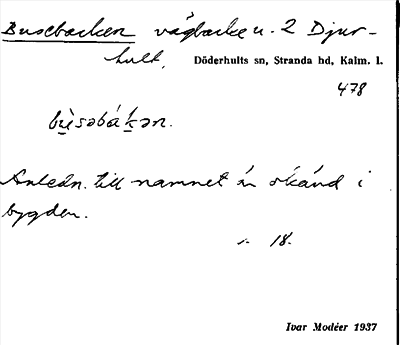 Busebacken vägbacke u. 2 Djur-
hult,
Döderhults sn, Stranda hd, Kalm. l.
478
bùsəbákən.
Anledn. till namnet är okänd i
bygden.
18.
Ivar Modéer 1937